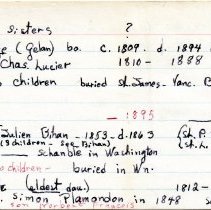 sisters ?
(Gelan) bo. c. 1809. d. 1894
Chas. Lucier 1810 - 1888
children buried St. James - Vanc. B
- 1895
Julien Bihan - 1853 - d. 1863 (St. P.
(3 children - see Bihan) (St. L.
schanble in Washington
children - buried in Wn.
(eldest dau.) 1812 -
Simon Plamondon in 1848
son Norbert François